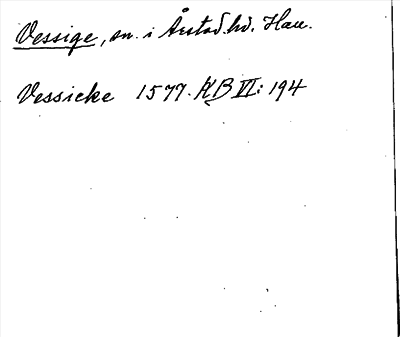 Vessige, sn. i Årstad hd. Hall.
Vessicke 1577. KB VI: 194